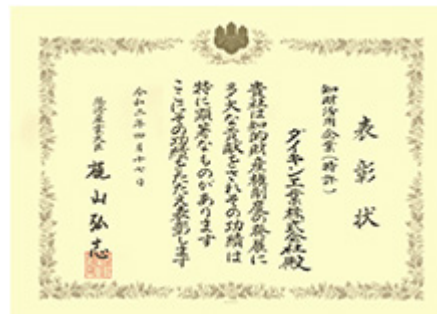 表彰状
知財活用企業(特許)
ダイキン工業株式会社殿
貴社は知的財産権制度の発展に
多大な貢献をされその功績は
特に顕著なものがあります
ここにその功績をたたえ表彰します
令和三年四月十七日
経済産業大臣 梶山弘志